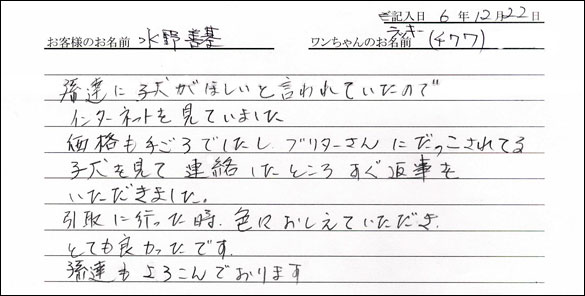 ご記入日 6年12月22日
お客様のお名前 水野善基 ワンちゃんのお名前 ラッキー(477)
孫達に子犬がほしいと言われていたので
インターネットを見ていました
価格も手ごろでしたし、ブリターさんにだっこされてる
子犬を見て連絡したところすぐ返事を
いただきました。
引取に行った時、色々おしえていただき、
とても良かったです。
孫達もよろこんでおります